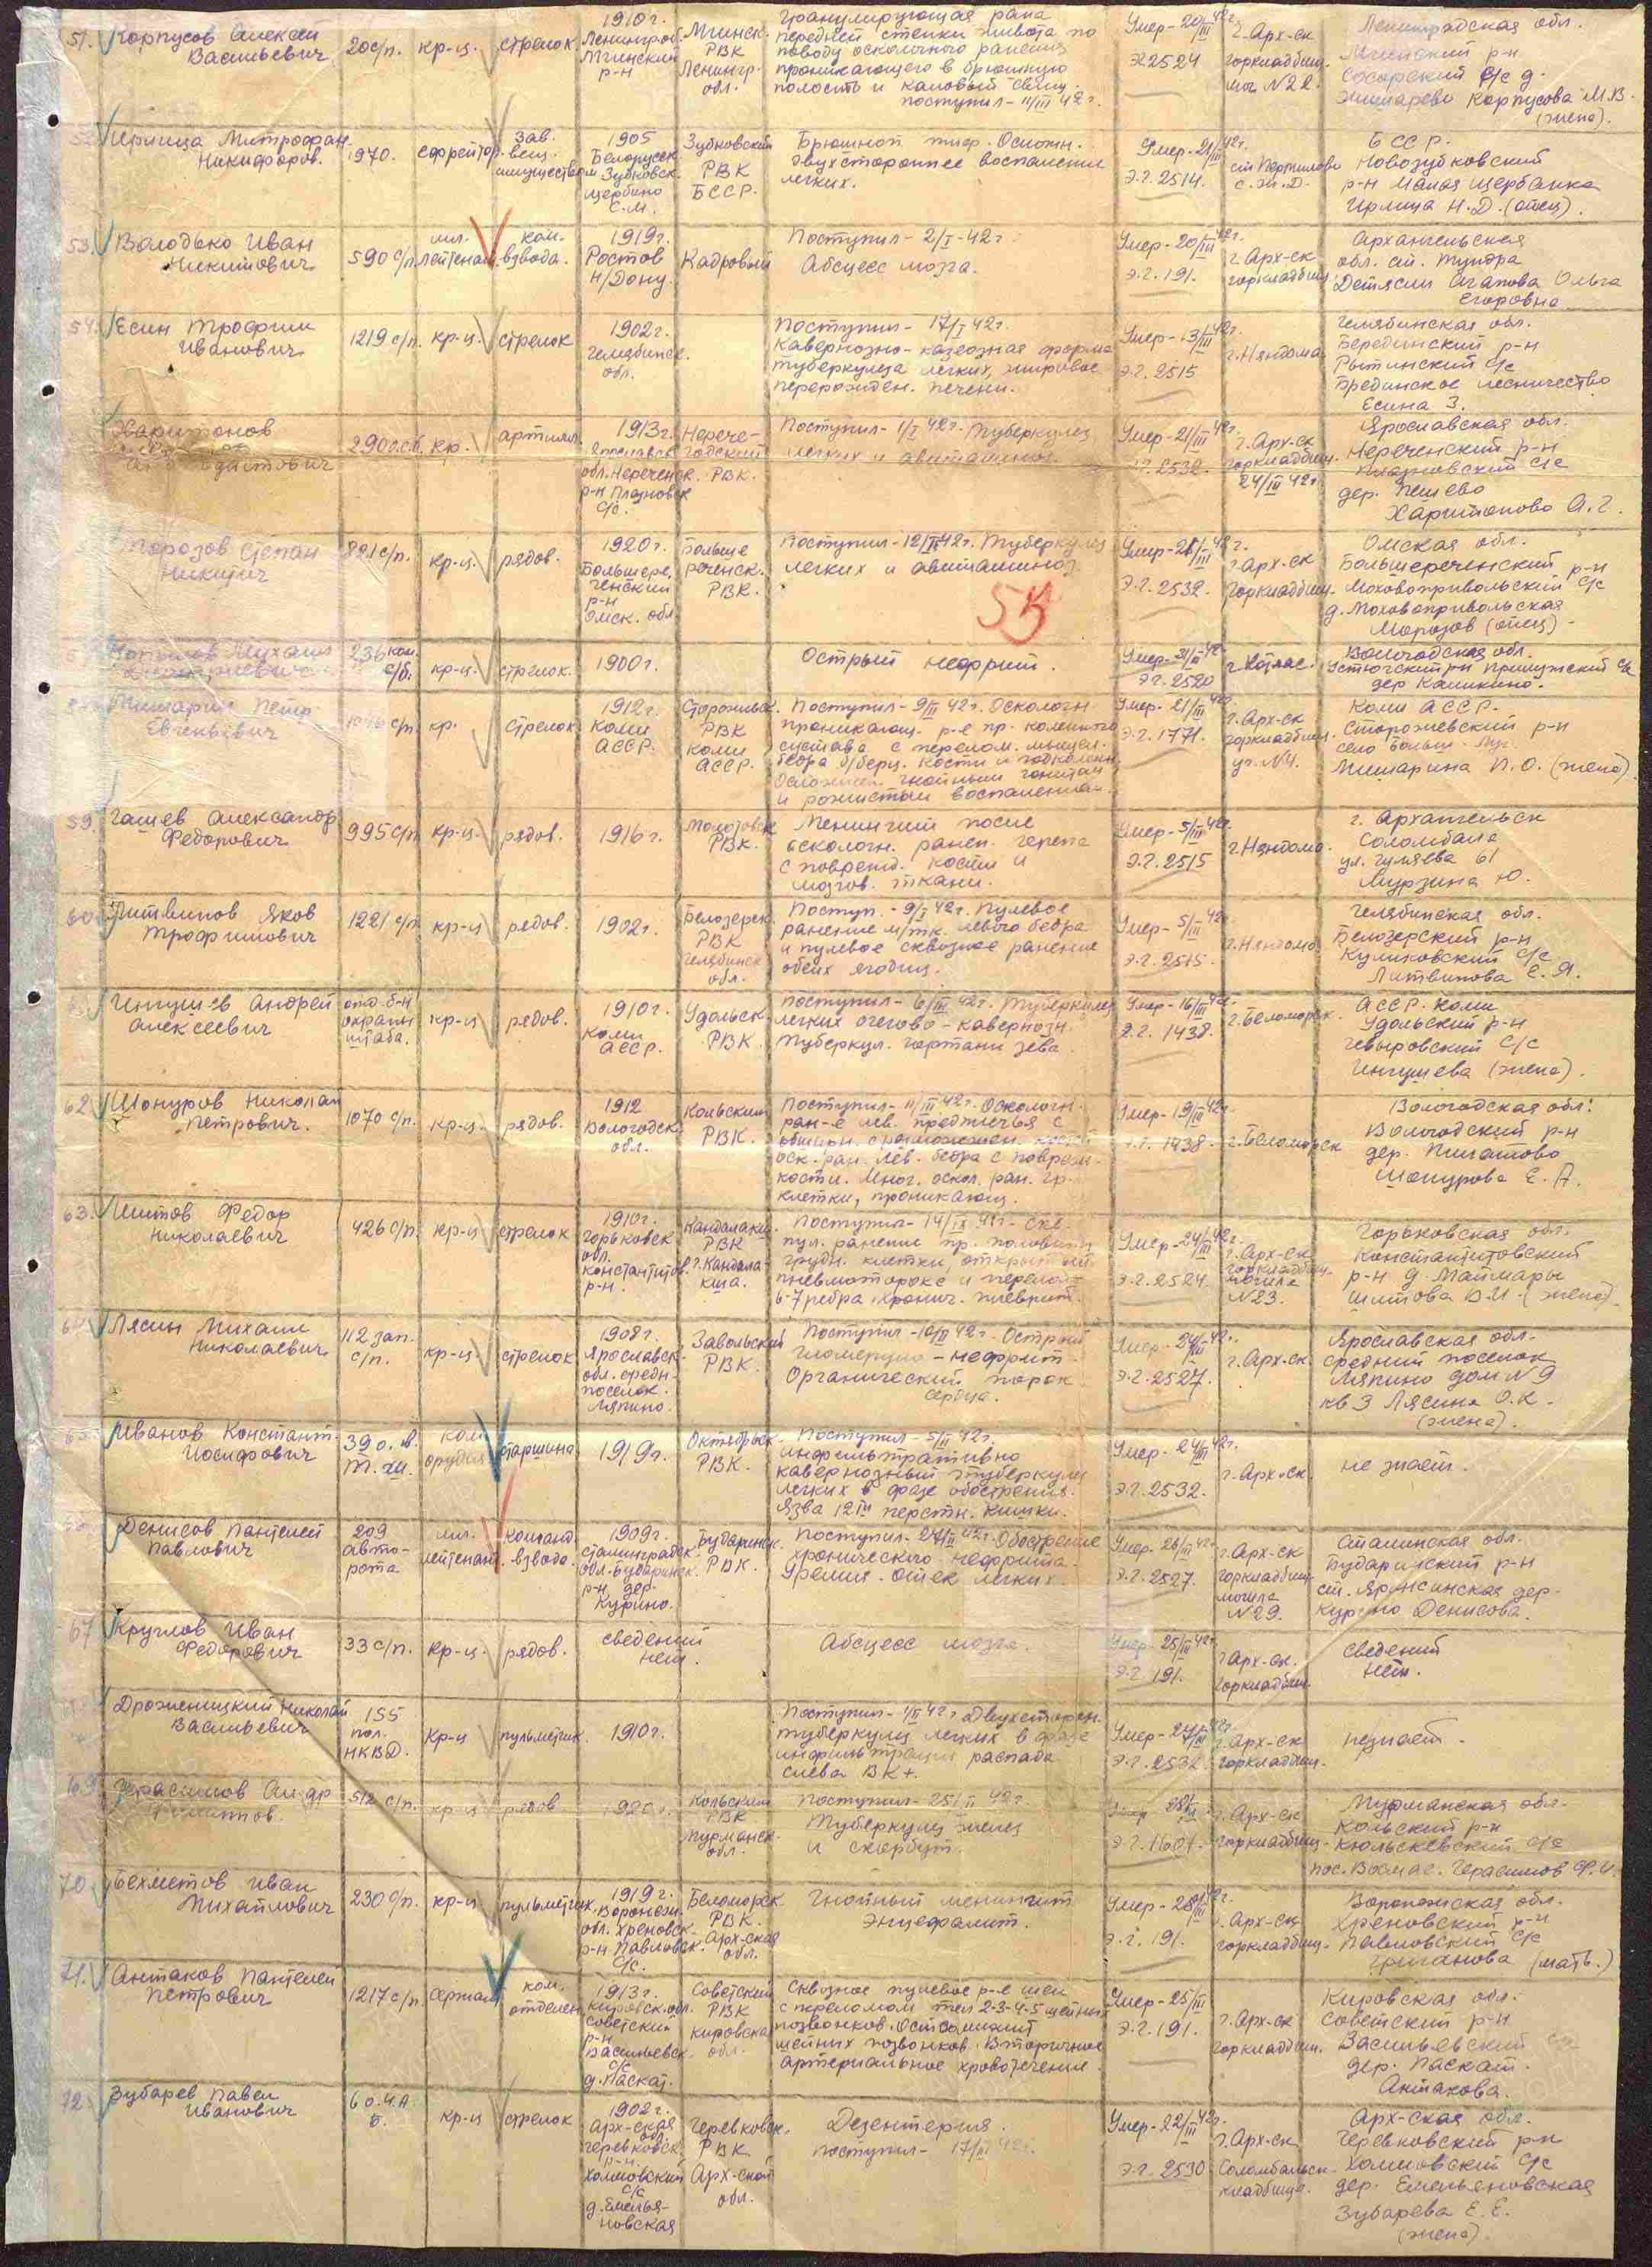 51. Корпусов Алексей
Васильевич
20 с/п.
кр-ц.
стрелок
1910 г.
Ленингр. об.
Мгинский
р-н
Мгинск.
РВК
Ленингр.
обл.
Гранулирующая рана
передней стенки живота по
поводу осколочного ранения
проникающего в брюшную
полость и каловый свищ.
поступил - 11/III 42 г.
Умер - 20/III 42 г.
Э.2524
г. Арх-ск
горкладбищ.
мог. N 22.
Ленинградская обл.
Мгинский р-н
с/с д.
Жихарево Корпусова М.В.
(жена).
Митрофан
Никифоров.
1970.
ефрейтор
Зав.
вещ.
имуществом
1905
Белорусск.
Зубковск.
Щербино
С.М.
Зубковский
РВК
БССР.
Брюшной тиф. Осложн.
двухстороннее воспаление
легких.
Умер - 21/III 42 г.
Э.г. 2514.
с. ж. д.
БССР.
Новозубковский
р-н Малая Щербинка
Ирлица Н.Д. (отец).
53. Володько Иван
Никитович
590 с/п
мл.
лейтенант
ком.
взвода.
1919 г.
Ростов
н/Дону.
Кадровый
Поступил - 2/I - 42 г.
Абсцесс мозга.
Умер - 20/III 42 г.
Э.г. 191.
г. Арх-ск
горкладбищ
Архангельская
обл. ст. Тундра
Детясли Агапова Ольга
Егоровна
54. Есин Трофим
Иванович
1219 с/п.
кр-ц.
стрелок
1902 г.
Челябинск.
обл.
Поступил - 17/I 42 г.
Кавернозно-казеозная форма
туберкулеза легких, жировое
перерожден. печени.
Умер - 13/III 42 г.
Э.г. 2515
г. Няндома
Челябинская обл.
Берединский р-н
Рытинский с/с
Брединское лесничество
Есина З.
Харитонов
кр.
артил.
1913 г.
Ярославск
обл. Нереченск.
р-н Плазновск
с/с.
Нерече-
годский
РВК.
Поступил - 1/I 42 г. Туберкулез
легких и авитаминоз
Умер - 21/III 42 г.
Э.г. 2532.
г. Арх-ск
горкладбищ.
24/III 42 г
Ярославская обл.
Нереченский р-н
Плазновский с/с
дер. Пешево
Харитонова А.Г.
Морозов Степан
Никитич
821 с/п.
кр-ц.
рядов.
1920 г.
Большере-
ченский
р-н
Омск. обл.
Больше
реченск.
РВК.
Поступил - 12/II 42 г. Туберкулез
легких и авитаминоз
Э.г. 2532.
г. Арх-ск
горкладбищ.
Омская обл.
Большереченский р-н
Моховопривольский с/с
д. Моховопривольская
Морозов (отец) -
236 кон.
с/б.
кр-ц.
стрелок.
1900 г.
Острый нефрит.
Э.г. 2520
г. Котлас.
Вологодская обл.
дер Каликино.
Мишарин Петр
Евгеньевич
кр.
стрелок
1912 г.
Коми
АССР.
Сторожевск.
РВК
Коми
АССР.
Поступил - 9/II 42 г. Осколочн
проникающ. р-е пр. коленного
сустава с перелом. мыщел.
бедра б/берц. кости
Осложнен гнойным гонитом
и рожистым воспалением.
Умер - 21/III 42 г.
Э.г. 1771.
г. Арх-ск
горкладбищ.
уч. N 4.
Коми АССР.
Сторожевский р-н
Мишарина П.О. (жена).
59. Гашев Александр
Федорович
995 с/п
кр-ц.
рядов.
1916 г.
Молотовск
РВК.
Менингит после
осколочн. ранен. черепа
с поврежд. кости и
мозгов. ткани.
Умер - 5/III 42 г.
Э.г. 2515
г. Няндома.
г. Архангельск
Соломбала
ул. Гуляева 61
Мурзина Ю.
60. Литвинов Яков
Трофимович
1221 с/п
кр-ц.
рядов.
1902 г.
Белозерск.
РВК
Челябинск
обл.
Поступ. - 9/I 42 г. Пулевое
ранение м/тк. левого бедра
и пулевое сквозное ранение
обеих ягодиц.
Умер - 5/III 42 г.
Э.г. 2515.
г. Няндома
Челябинская обл.
Белозерский р-н
Куликовский с/с
Литвинова Е.Я.
Ингушев Андрей
Алексеевич
отд. б-н
охраны
штаба.
кр-ц
рядов.
1910 г.
Коми
АССР.
Удольск
РВК.
Поступил - 6/III 42 г. Туберкулез
легких очагово-кавернозн.
Туберкул. гортани зева.
Умер - 16/III 42 г.
Э.г. 1438.
г. Беломорск.
АССР. Коми
Удольский р-н
Чевыровский с/с
Ингушева (жена).
62. Шопуров Николай
Петрович.
1070 с/п.
кр-ц.
рядов.
1912
Вологодск
обл.
Кольский
РВК.
Поступил - 11/III 42 г. Осколочн.
ран-е лев. предплечья с
обширн. с размозжен. костей
оск. ран. лев. бедра с поврежд.
кости. Множ. оскол. ран. гр.
клетки, проникающ.
Умер - 19/III 42 г.
Э.г. 1438.
г. Беломорск
Вологодская обл.
Вологодский р-н
дер.
Шопурова Е.А.
63. Шитов Федор
Николаевич
426 с/п.
кр-ц
стрелок
1910 г.
Горьковск
обл.
Константинов.
р-н.
Кандалакш.
РВК
г. Кандала-
кша.
пул. ранение пр. половины
грудн. клетки, открытый
пневмоторакс и перелом
6-7 ребра, хронич. плеврит.
Умер - 24/III 42 г.
Э.г. 2524.
г. Арх-ск
горкладбищ.
могила
N 23.
Горьковская обл.
Константиновский
р-н д. Маймары
Шитова В.И. (жена).
64. Лясин Михаил
Николаевич
112 зап.
с/п.
кр-ц
стрелок
1908 г.
Ярославск.
обл. средн.
поселок.
Ляпино.
Завольский
РВК.
Поступил - 10/II 42 г. Острый
гломеруло-нефрит.
Органический порок
сердца.
Умер - 24/III 42 г.
Э.г. 2527.
г. Арх-ск.
Ярославская обл.
средний поселок
Ляпино дом N 9
кв 3 Лясина О.К.
(жена).
65. Иванов Констант.
Иосифович
ком.
орудия
старшина
1919 г.
Октябрьск.
РВК.
Поступил - 5/II 42 г.
инфильтративно
кавернозный туберкулез
легких в фазе обострения.
Язва 12ти перстн. кишки.
Умер - 24/III 42 г.
Э.г. 2532.
г. Арх-ск.
не знает.
Денисов Пантелей
Павлович
209
авто-
рота
мл.
лейтенант.
команд.
взвода.
1909 г.
Сталинградск.
обл. Бударинск.
р-н дер.
Курино.
Бударинск.
РВК.
Поступил - 27/II 42 г. Обострение
хронического нефрита.
Уремия. Отек легких.
Умер - 26/III 42 г.
Э.г. 2527.
г. Арх-ск
горкладбищ.
могила
N 29.
Сталинская обл.
Бударинский р-н
дер.
Курино Денисова.
67 Круглов Иван
Федорович
33 с/п.
кр-ц.
рядов.
сведений
нет.
Абсцесс мозга.
Умер - 25/III 42 г.
Э.г. 191.
г. Арх-ск.
горкладбищ.
сведений
нет.
Дроженицкий Николай
Васильевич
155
пол.
НКВД.
кр-ц
пулеметчик.
1910 г.
Поступил - 1/II 42 г. Двухсторон.
туберкулез легких в фазе
инфильтрации распада
слева ВК+.
Умер - 27/III 42 г.
Э.г. 2532
г. Арх-ск
горкладбищ.
незнает.
69. Герасимов Ал-др
512 с/п.
кр-ц
рядов
1920 г.
Кольский
РВК
Мурманск.
обл.
Поступил - 25/II 42 г.
Туберкулез желез
и скорбут.
Э.г. 1601.
г. Арх-ск
горкладбищ.
Мурманская обл.
Кольский р-н
пос. Восмас. Герасимов Ф.И.
70. Бехметов Иван
Михайлович
230 с/п.
кр-ц
пулеметчик.
1919 г.
Воронеж.
обл. Хреновск.
р-н Павловск.
с/с.
Беломорск.
РВК.
Арх-ская
обл.
Гнойный менингит
энцефалит.
Умер - 28/III 42 г.
Э.г. 191.
г. Арх-ск
горкладбищ.
Воронежская обл.
Хреновский р-н
Павловский с/с
(мать.)
71. Антаков Пантелей
Петрович
1217 с/п.
сержант
ком.
отделен.
1913 г.
Кировск. обл.
Советский
р-н
Васильевск.
с/с
д. Паскат.
Советский
РВК
Кировска
обл.
Сквозное пулевое р-е шеи
с переломом тел 2-3-4-5 шейных
позвонков. Остеомиелит
шейных позвонков. Вторичное
артериальное кровотечение.
Умер - 25/III
Э.г. 191.
г. Арх-ск
горкладбищ.
Кировская обл.
Советский р-н
Васильевский с/с
дер. Паскат.
Антакова.
72. Зубарев Павел
Иванович
кр-ц
стрелок
1902 г.
Арх-ская
обл.
Черевковск.
р-н.
Холмовский
с/с
д. Емелья-
новская
Черевковск.
РВК
Арх-ской
обл.
Дезентерия.
поступил - 17/II 42 г.
Умер - 22/III 42 г.
Э.г. 2530
г. Арх-ск
Соломбальск.
кладбище.
Арх-ская обл.
Черевковский р-н
Холмовский с/с
дер. Емельяновская
Зубарева Е.Е.
(жена).